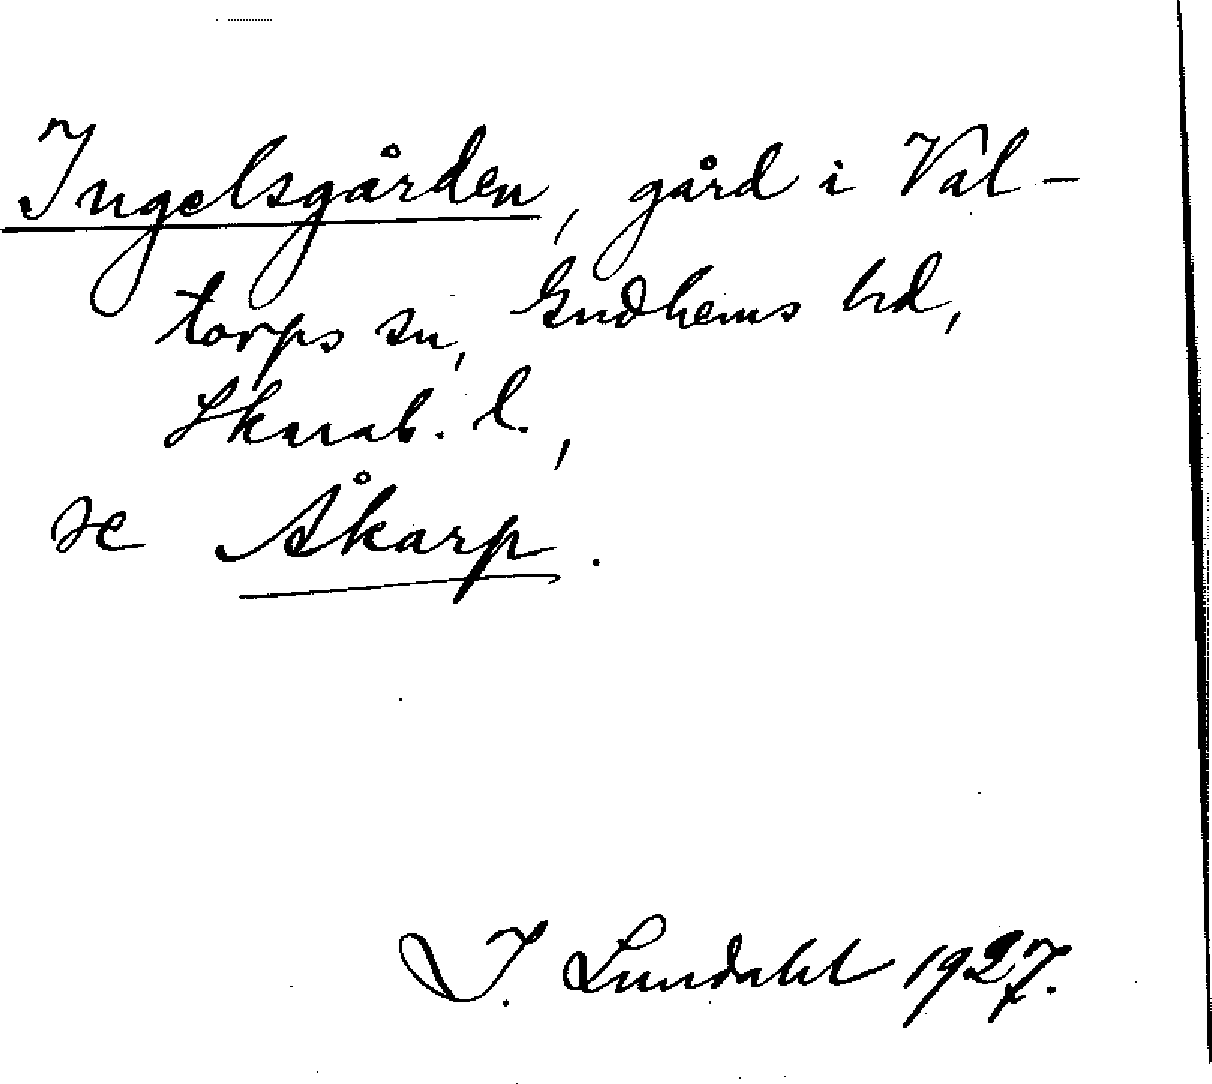 Ingelsgården, gård i Val-
torps sn, Gudhems hd,
Skarab. l.,
se Åkarp.
I. Lundahl 1927.